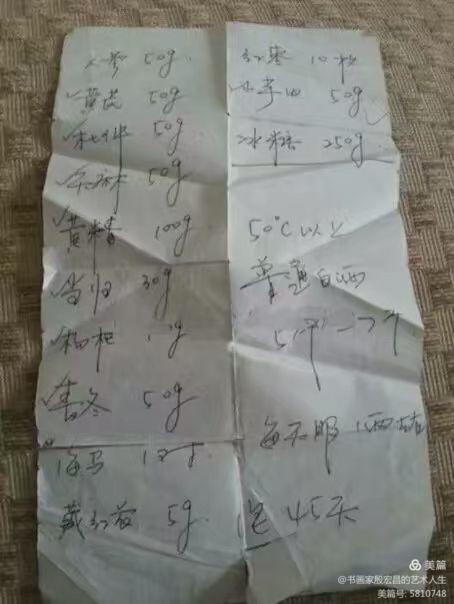 人参 50g
黄芪 50g
杜仲 50g
50g
黄精 100g
当归 30g
枸杞
50g
海马
藏红花 5g
红枣 10枚
50g
冰糖 250g
50℃以上
普通白酒
5斤一7斤
每天服
泡45天
美篇
@书画家殷宏昌的艺术人生
美篇号: 5810748